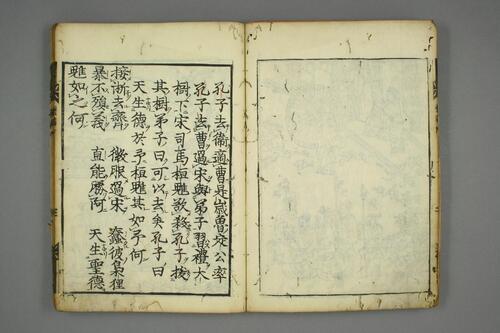 孔子去衛適曹是歳魯定公卒
孔子去曹過宋與弟子習禮大
樹下宋司馬桓魋欲殺孔子拔
其樹弟子曰可以去矣孔子曰
天生德於予桓魋其如予何
接淅去齊 微服過宋 蠢彼梟狸
暴不殞義 直能勝阿 天生聖德
魋如之何